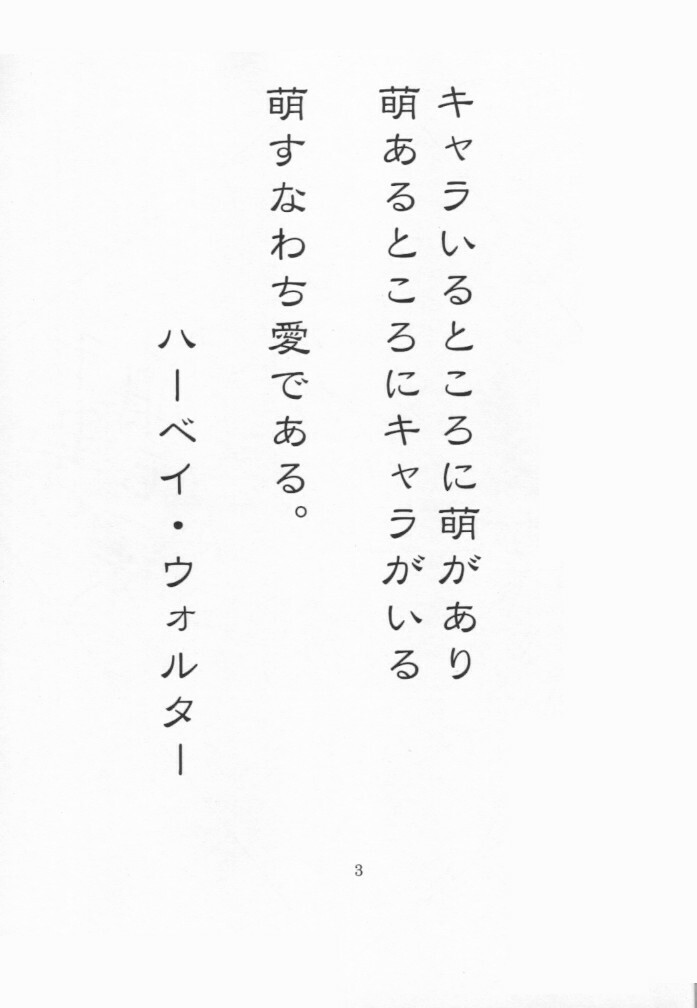 キャラいるところに萌があり
萌あるところにキャラがいる
萌すなわち愛である。
ハーベイ・ウォルター
3